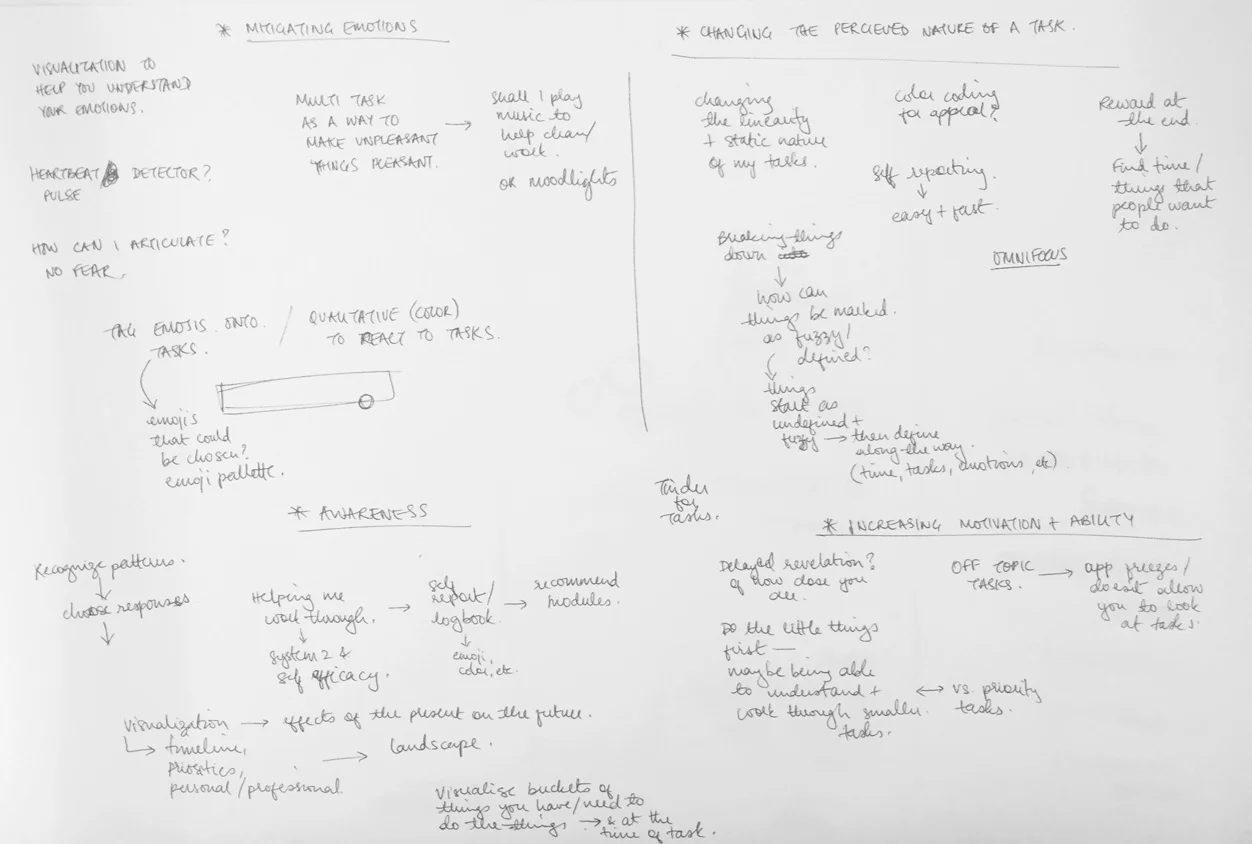 * MITIGATING EMOTIONS
VISUALIZATION TO
HELP YOU UNDERSTAND
YOUR EMOTIONS.
HEARTBEAT DETECTOR?
PULSE
HOW CAN I ARTICULATE?
NO FEAR,
MULTI TASK
AS A WAY TO →
MAKE UNPLEASANT
THINGS PLEASANT.
shall I play
music to
help clean/
work.
or moodlights
TAG EMOJIS ONTO /
TASKS.
QUALITATIVE (COLOR)
TO REACT TO TASKS.
emojis
that could
be chosen?
emoji pallette.
* CHANGING THE PERCIEVED NATURE OF A TASK.
changing
the linearity
+ static nature
of my tasks.
color coding
for appeal?
Self reporting.
↓
easy + fast.
Reward at
the end.
↓
Find time/
things that
people want
to do.
OMNIFOCUS
Breaking things
down
↓
how can
things be marked.
as fuzzy/
defined?
↓
things
start as
undefined +
fuzzy → then define
along the way.
(time, tasks, emotions, etc).
Tinder
for
Tasks.
* AWARENESS
Recognize patterns.
↓
choose responses
↓
Helping me
work through. →
↓
system 2 &
self efficacy.
self
report/
logbook. →
↓
emoji,
color, etc.
recommend
modules.
visualization → effects of the present on the future.
→ timeline,
priorities, →
personal/professional.
landscape.
Visualise buckets of
things you have/need to
do the things → & at the
time of task.
* INCREASING MOTIVATION + ABILITY
Delayed revelation?
of how close you
are.
Do the little things
first —
maybe being able
to understand +
work through smaller.
tasks.
↔ vs. priority
tasks.
OFF TOPIC →
TASKS.
app freezes/
doesn't allow
you to look
at tasks.